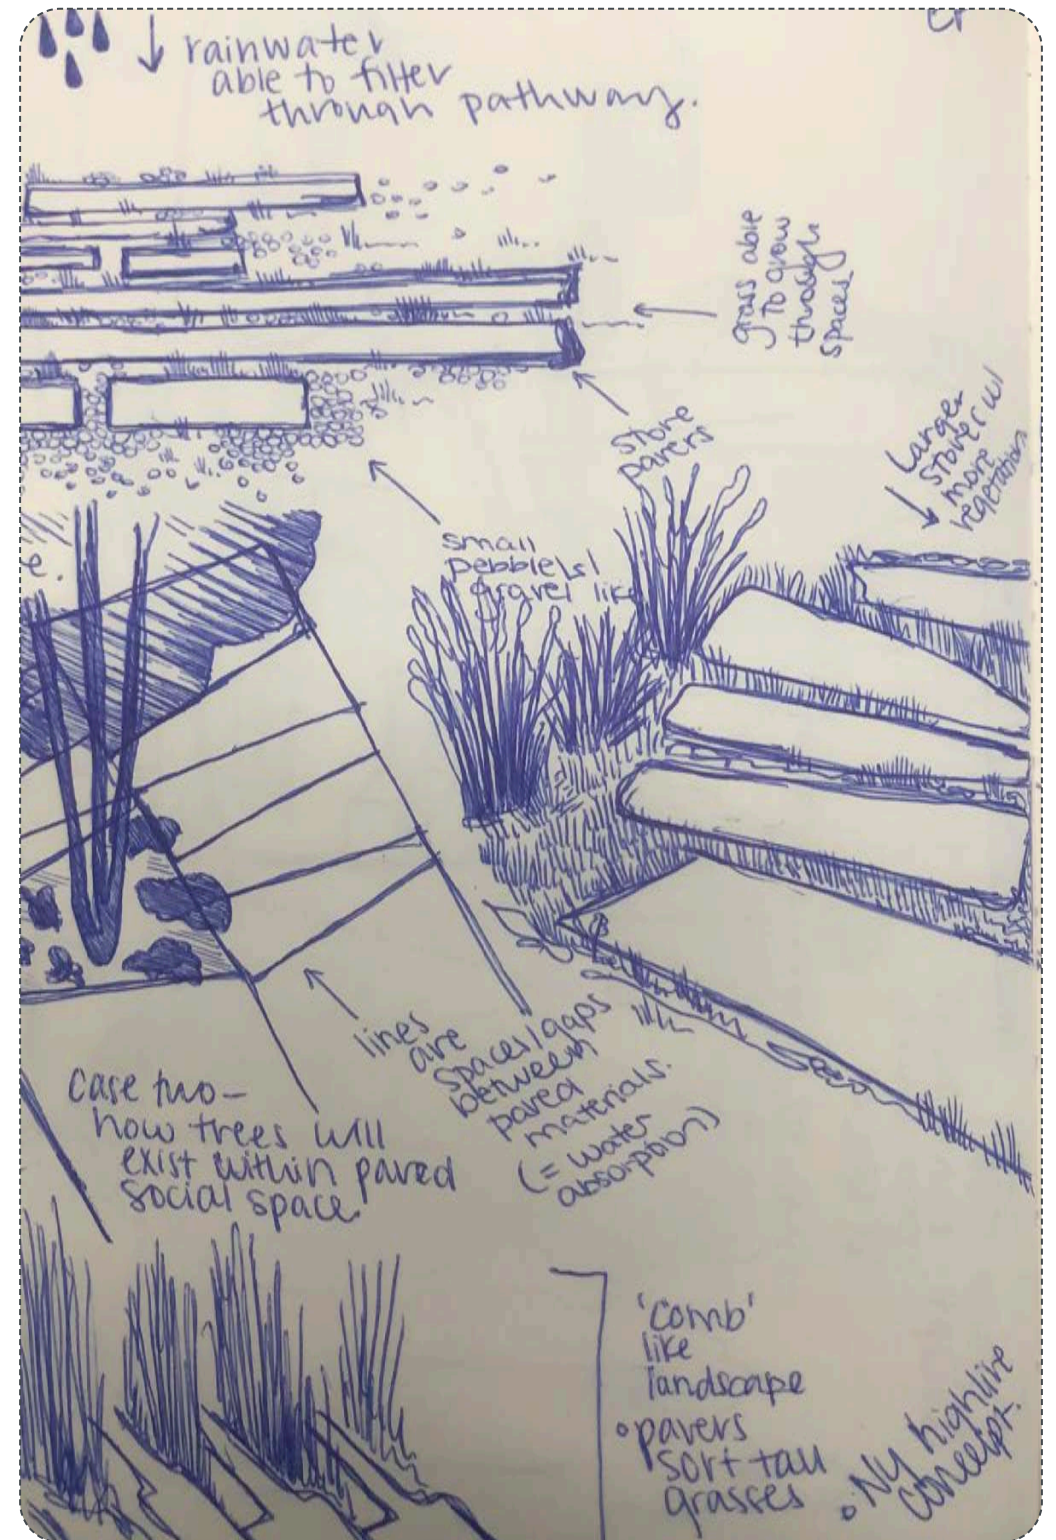 rainwater
able to filter
through pathway.
grass able
to grow
through
spaces
stone
pavers
Larger
stone w/
more
vegetation
small
pebbles/
gravel like
e.
lines
are
spaces/gaps
between
paved
materials.
(= water
absorption)
case two-
how trees will
exist within paved
social space.
'comb'
like
landscape
• pavers
sort tall
grasses
• NY highline
concept.